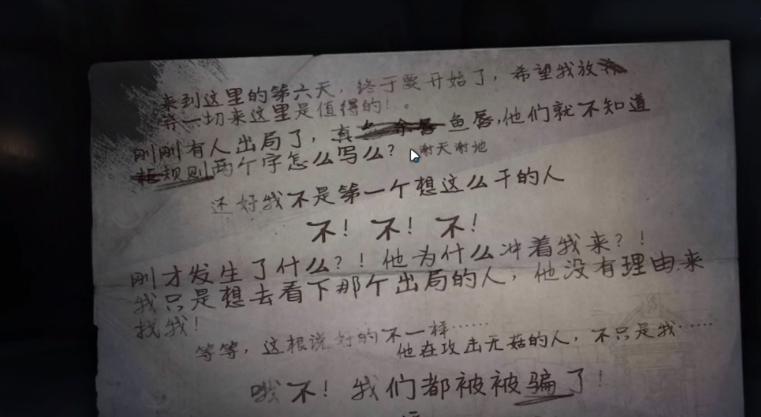 来到这里的第六天，终于要开始了，希望我放
弃一切来这里是值得的！。
刚刚有人出局了，真 鱼唇，他们就不知道
规则两个字怎么写么？谢天谢地
还好我不是第一个想这么干的人
不！不！不！
刚才发生了什么？！他为什么冲着我来？！
我只是想去看下那个出局的人，他没有理由来
找我！
等等，这根说好的不一样……
他在攻击无菇的人，不只是我……
哦不！我们都被被骗了！